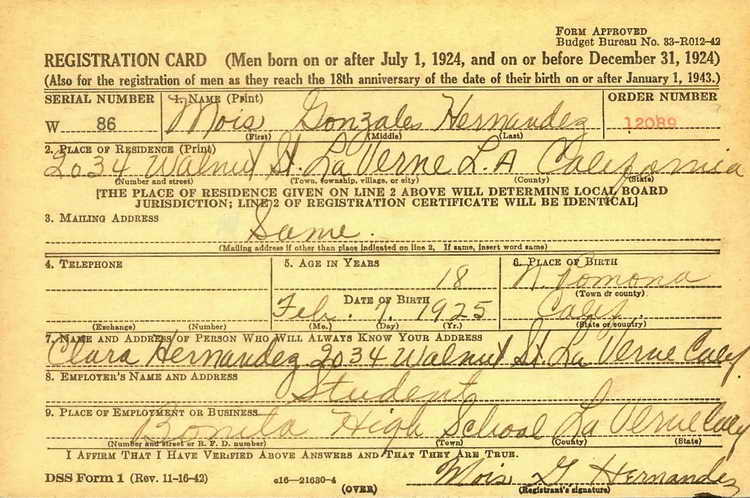 FORM APPROVED
Budget Bureau No. 33-R012-42
REGISTRATION CARD (Men born on or after July 1, 1924, and on or before December 31, 1924)
(Also for the registration of men as they reach the 18th anniversary of the date of their birth on or after January 1, 1943.)
SERIAL NUMBER 1. NAME (Print) ORDER NUMBER
W 86 Mois Gonzales Hernandez 12089
(First) (Middle) (Last)
2. PLACE OF RESIDENCE (Print)
2034 Walnut St. La Verne L.A California
(Number and street) (Town, township, village, or city) (County) (State)
[THE PLACE OF RESIDENCE GIVEN ON LINE 2 ABOVE WILL DETERMINE LOCAL BOARD
JURISDICTION; LINE 2 OF REGISTRATION CERTIFICATE WILL BE IDENTICAL]
3. MAILING ADDRESS
Same.
(Mailing address if other than place indicated on line 2. If same, insert word same)
4. TELEPHONE 5. AGE IN YEARS 6. PLACE OF BIRTH
18 N. Pomona
(Town or county)
DATE OF BIRTH
Feb. 7, 1925 Calif.
(Exchange) (Number) (Mo.) (Day) (Yr.) (State or country)
7. NAME AND ADDRESS OF PERSON WHO WILL ALWAYS KNOW YOUR ADDRESS
Clara Hernandez 2034 Walnut St. La Verne Calif.
8. EMPLOYER'S NAME AND ADDRESS
Student
9. PLACE OF EMPLOYMENT OR BUSINESS
Bonita High School La Verne Calif
(Number and street or R. F. D. number) (Town) (County) (State)
I AFFIRM THAT I HAVE VERIFIED ABOVE ANSWERS AND THAT THEY ARE TRUE.
DSS Form 1 (Rev. 11-16-42) c16-21630-4 Mois G Hernandez
(OVER) (Registrant's signature)